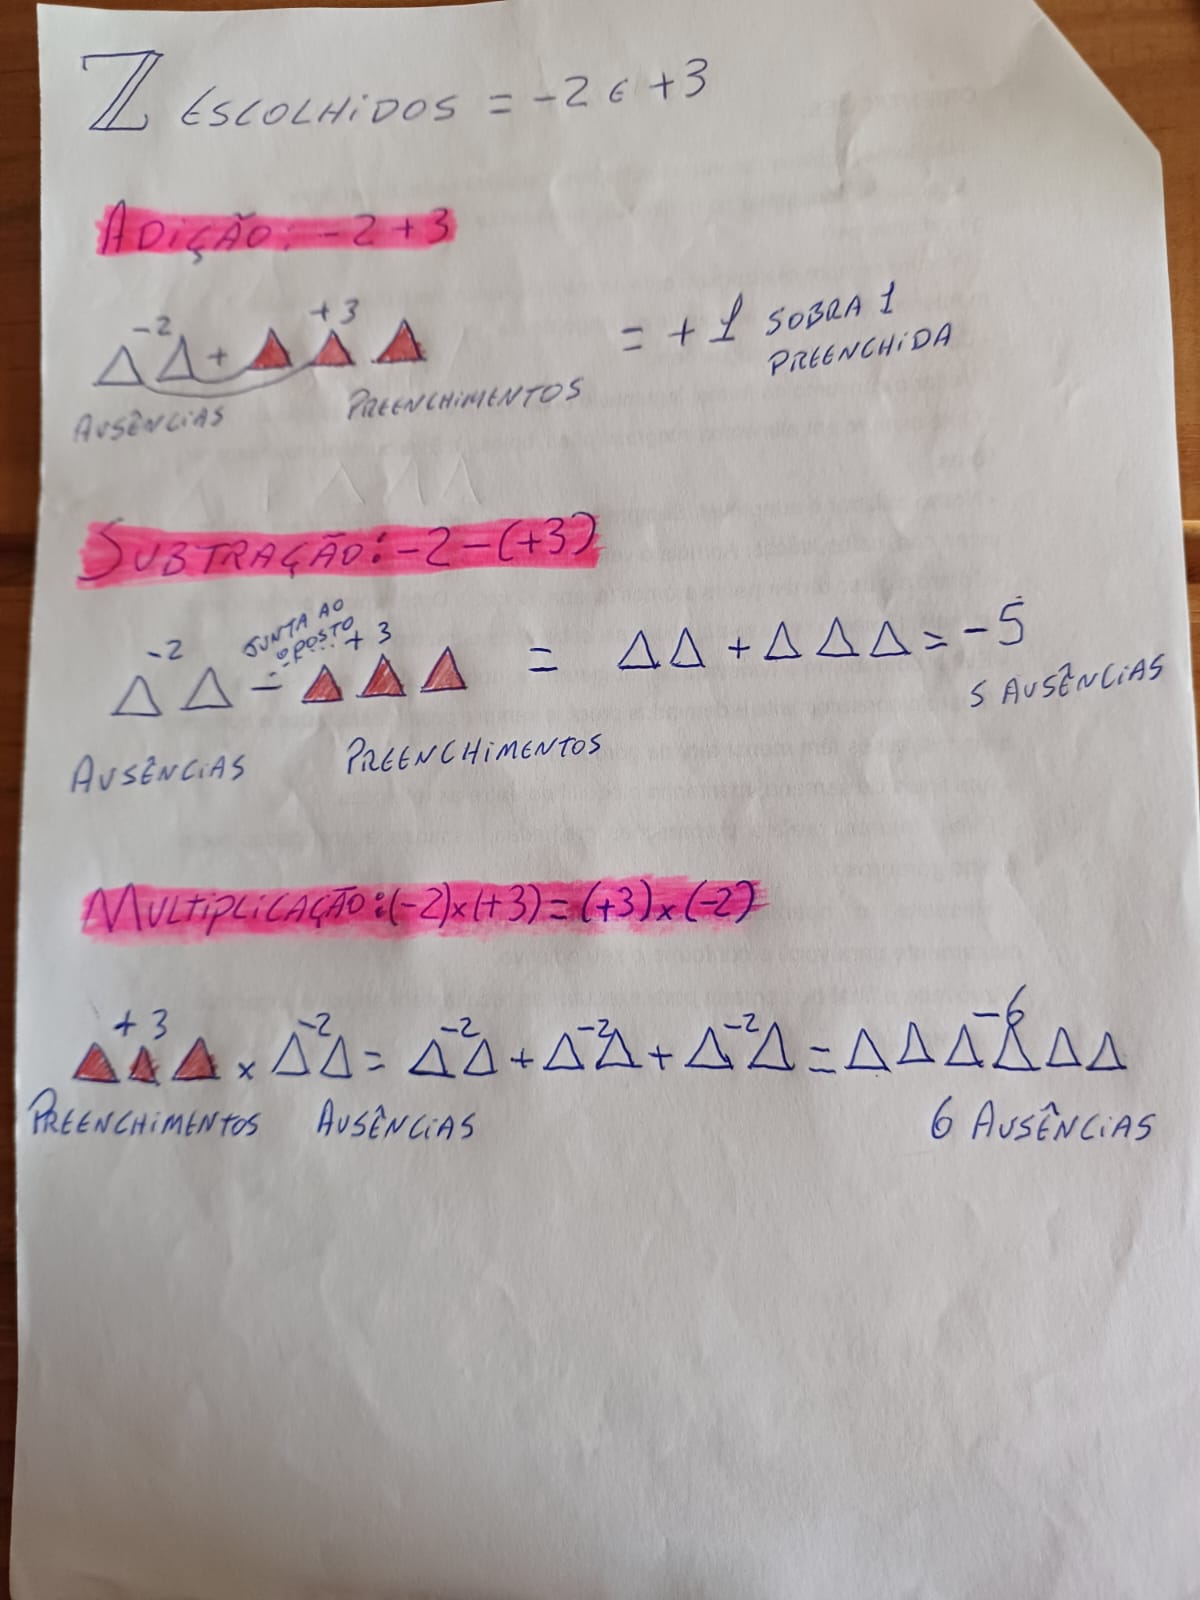 ℤ ESCOLHIDOS = -2 E +3
ADIÇÃO: -2 + 3
-2 +3
△ △ + ▲ ▲ ▲ = +1 SOBRA 1
PREENCHIDA
AUSÊNCIAS PREENCHIMENTOS
SUBTRAÇÃO: -2 - (+3)
-2 JUNTA AO
OPOSTO +3
△ △ - ▲ ▲ ▲ = △ △ + △ △ △ = -5
5 AUSÊNCIAS
AUSÊNCIAS PREENCHIMENTOS
MULTIPLICAÇÃO: (-2) x (+3) = (+3) x (-2)
+3 -2 -2 -2 -2 -6
▲ ▲ ▲ x △ △ = △ △ + △ △ + △ △ = △ △ △ △ △ △
PREENCHIMENTOS AUSÊNCIAS 6 AUSÊNCIAS